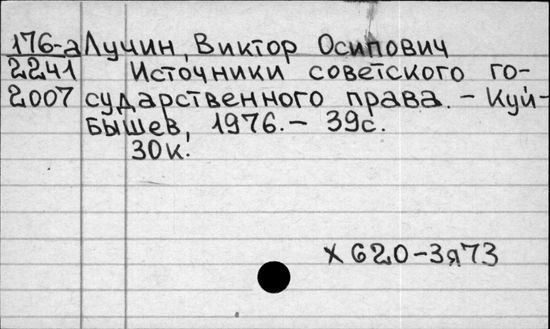 176-а Лучин, Виктор Осипович
2241 Источники советского го-
2007 сударственного права. - Куй-
бышев, 1976. - 39с.
30к.
Х620-3я73